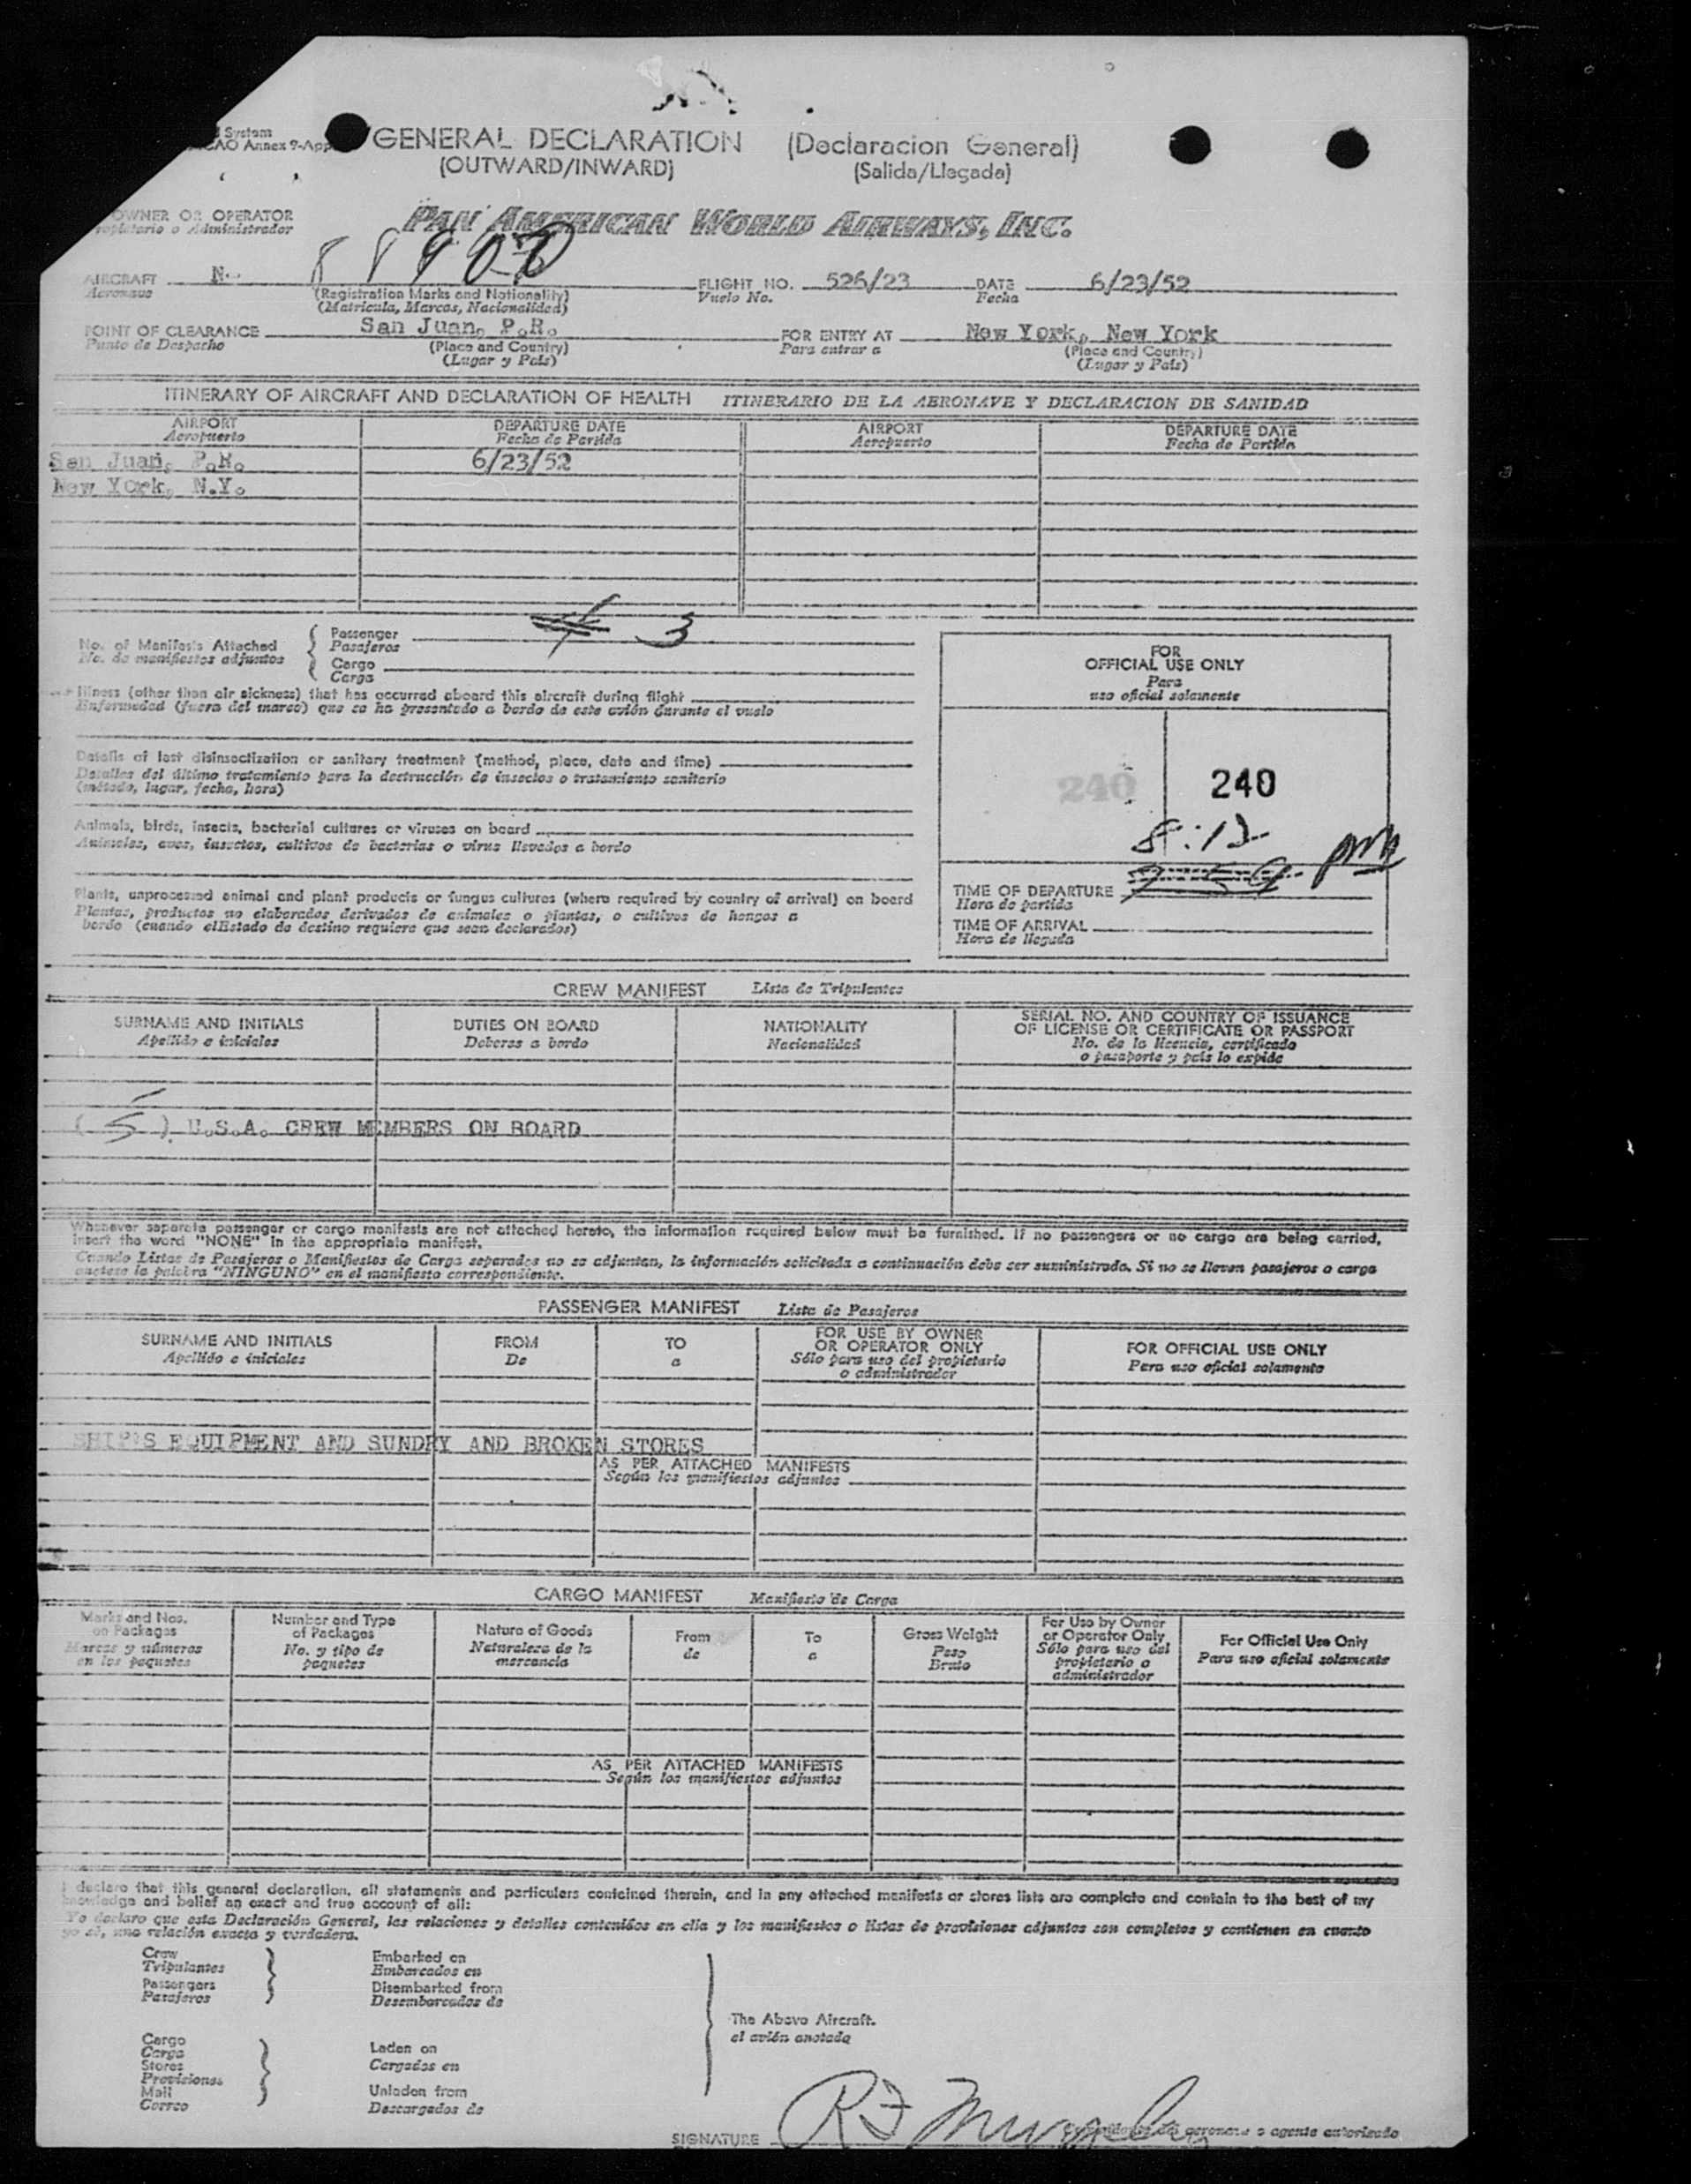 System
ICAO Annex 9-App
GENERAL DECLARATION (Declaracion General)
(OUTWARD/INWARD) (Salida/Llegada)
OWNER OR OPERATOR
Propietario o Administrador
PAN AMERICAN WORLD AIRWAYS, INC.
AIRCRAFT N- FLIGHT NO. 526/23 DATE 6/23/52
Aeronave Vuelo No. Fecha
(Registration Marks and Nationality)
(Matricula, Marcas, Nacionalidad)
POINT OF CLEARANCE San Juan, P.R. FOR ENTRY AT New York, New York
Punto de Despacho (Place and Country) Para entrar a (Place and Country)
(Lugar y País) (Lugar y País)
ITINERARY OF AIRCRAFT AND DECLARATION OF HEALTH ITINERARIO DE LA AERONAVE Y DECLARACION DE SANIDAD
AIRPORT DEPARTURE DATE AIRPORT DEPARTURE DATE
Aeropuerto Fecha de Partida Aeropuerto Fecha de Partida
San Juan, P.R. 6/23/52
New York, N.Y.
No. of Manifests Attached Passenger 3
No. de manifiestos adjuntos Pasajeros
Cargo
Carga
Illness (other than air sickness) that has occurred aboard this aircraft during flight
Enfermedad (fuera del mareo) que se ha presentado a bordo de este avión durante el vuelo
Details of last disinsectization or sanitary treatment (method, place, date and time)
Detalles del último tratamiento para la destrucción de insectos o tratamiento sanitario
(método, lugar, fecha, hora)
Animals, birds, insects, bacterial cultures or viruses on board
Animales, aves, insectos, cultivos de bacterias o virus llevados a bordo
Plants, unprocessed animal and plant products or fungus cultures (where required by country of arrival) on board
Plantas, productos no elaborados derivados de animales o plantas, o cultivos de hongos a
bordo (cuando el Estado de destino requiera que sean declarados)
FOR
OFFICIAL USE ONLY
Para
uso oficial solamente
240 240
8:12 pm
TIME OF DEPARTURE
Hora de partida
TIME OF ARRIVAL
Hora de llegada
CREW MANIFEST Lista de Tripulantes
SURNAME AND INITIALS DUTIES ON BOARD NATIONALITY SERIAL NO. AND COUNTRY OF ISSUANCE
Apellido e iniciales Deberes a bordo Nacionalidad OF LICENSE OR CERTIFICATE OR PASSPORT
No. de la licencia, certificado
o pasaporte y país lo expide
( 5 ) U.S.A. CREW MEMBERS ON BOARD
Whenever separate passenger or cargo manifests are not attached hereto, the information required below must be furnished. If no passengers or no cargo are being carried,
insert the word "NONE" in the appropriate manifest.
Cuando Listas de Pasajeros o Manifiestos de Carga separados no se adjuntan, la información solicitada a continuación debe ser suministrada. Si no se llevan pasajeros o carga
anótese la palabra "NINGUNO" en el manifiesto correspondiente.
PASSENGER MANIFEST Lista de Pasajeros
SURNAME AND INITIALS FROM TO FOR USE BY OWNER FOR OFFICIAL USE ONLY
Apellido e iniciales De a OR OPERATOR ONLY Para uso oficial solamente
Sólo para uso del propietario
o administrador
SHIP'S EQUIPMENT AND SUNDRY AND BROKEN STORES
AS PER ATTACHED MANIFESTS
Según los manifiestos adjuntos
CARGO MANIFEST Manifiesto de Carga
Marks and Nos. Number and Type Nature of Goods From To Gross Weight For Use by Owner For Official Use Only
on Packages of Packages Naturaleza de la de a Peso or Operator Only Para uso oficial solamente
Marcas y números No. y tipo de mercancía Bruto Sólo para uso del
en los paquetes paquetes propietario o
administrador
AS PER ATTACHED MANIFESTS
Según los manifiestos adjuntos
I declare that this general declaration, all statements and particulars contained therein, and in any attached manifests or stores lists are complete and contain to the best of my
knowledge and belief an exact and true account of all:
Yo declaro que esta Declaración General, las relaciones y detalles contenidos en ella y los manifiestos o listas de provisiones adjuntos son completos y contienen en cuanto
yo sé, una relación exacta y verdadera.
Crew Embarked on
Tripulantes Embarcados en
Passengers Disembarked from
Pasajeros Desembarcados de
The Above Aircraft.
el avión anotado
Cargo Laden on
Carga Cargados en
Stores
Provisiones
Mail Unladen from
Correo Descargados de
SIGNATURE aeronave o agente autorizado